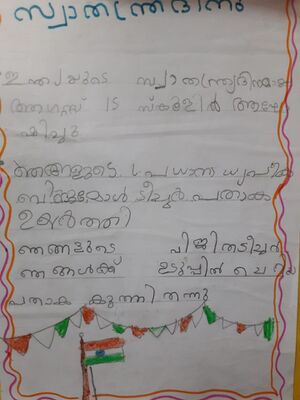 സ്വാതന്ത്ര്യദിനം
ഇന്ത്യയുടെ സ്വാതന്ത്ര്യദിനമായ
ആഗസ്റ്റ് 15 സ്കൂളിൽ ആഘോ
ഷിച്ചു
ഞങ്ങളുടെ പ്രധാനധ്യപിക
ടീച്ചർ പതാക
ഉയർത്തി
ഞങ്ങളുടെ ടീച്ചർ
ഞങ്ങൾക്ക് ഉടുപ്പിൽ ചെറിയ
പതാക കുത്തി തന്നു